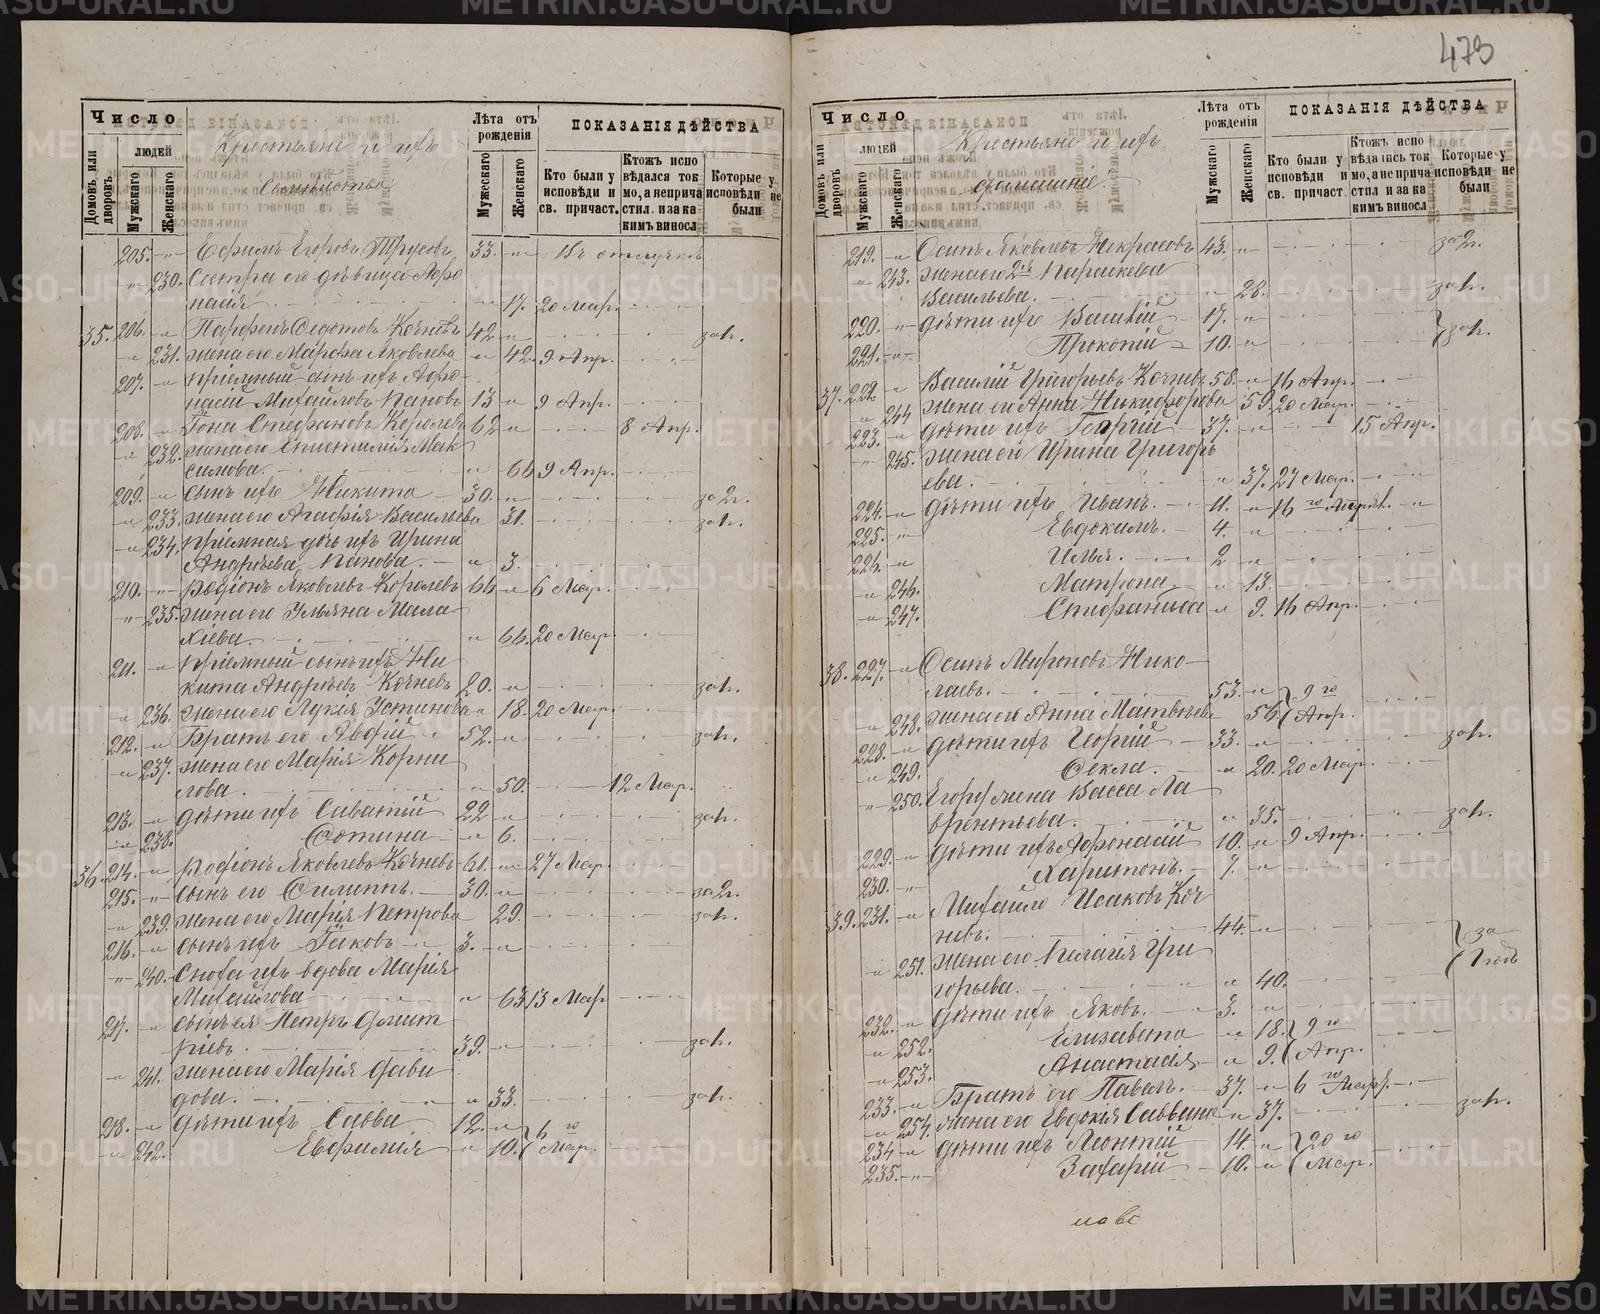 473
Число
Домовъ или дворовъ.
людей
Мужскаго
Женскаго
Крестьяне и ихъ
семейства
Лѣта отъ рожденія
Мужескаго
Женскаго
ПОКАЗАНІЯ ДѢЙСТВА
Кто были у исповѣди и св. причаст.
Ктожъ исповѣдался токмо, а не причастил. и за какимъ винослов
Которые у исповѣди не были
205. Ефимъ Егоровъ Трусовъ 33. Въ отлучкѣ
230. Сестра его дѣвица Афо
насія 17. 20 Мар.
35. 206. Парфенъ Федотовъ Кочневъ 42 за н.
231. жена его Марфа Яковлева 42. 9 Апр.
207. пріемный сынъ ихъ Афо
насій Михайловъ Пановъ 13 9 Апр.
208. Іона Стефановъ Королевъ 62 8 Апр.
232. жена его Мак
симова. 66 9 Апр.
209. сынъ ихъ Никита 30. за 2г.
233. жена его Агафія Васильева 31. за н.
234. пріемная дочь ихъ Ирина
Андреева Панова. 3.
210. Родіонъ Яковлевъ Королевъ 66 6 Мар.
235. жена его Ульяна Мала
хіева 66. 20 Мар.
211. пріемный сынъ ихъ Ни
кита Андреевъ Кочневъ 20. за н.
236. жена его Лукія Устинова 18. 20 Мар.
212. Братъ его Авдій 52. за н.
237. жена его Марія Корни
лова. 50. 12 Мар.
213. дѣти ихъ Саватій 22 за н.
238. Фотина 6.
36. 214. Родіонъ Яковлевъ Кочневъ 61. 27 Мар.
215. сынъ его Филиппъ. 30. за 2г.
239. жена его Марія Петрова 29. за н.
216. сынъ ихъ Іаковъ 3.
240. Сноха ихъ вдова Марія
Михайлова 63 13 Мар
217. сынъ ея Петръ Дмит
ріевъ 39. за н.
241. жена его Марія Дави
дова. 33. за н.
218. дѣти ихъ Савва 12. 6 го
242. Евфимія 10. Мар.
Число
Домовъ или дворовъ
людей
Мужскаго
Женскаго
Крестьяне и ихъ
домашніе.
Лѣта отъ рожденія
Мужскаго
Женскаго
ПОКАЗАНІЯ ДѢЙСТВА
Кто были у исповѣди и св. причаст.
Ктожъ исповѣдались токмо, а не причастил и за каким виносл
Которые у исповѣди не были
219. Осипъ Яковлевъ Некрасовъ 43. за 2г.
243. жена его 2я Параскева
Васильева. 28. за н.
220. дѣти ихъ Василій 17.
221. Прокопій 10. за н.
37. 222. Василій Григорьевъ Кочневъ 58. 16 Апр.
244 жена его Анна Никифорова 59. 20 Мар.
223. дѣти ихъ Георгій 37. 15 Апр.
245. жена его Ирина Григорь
ева. 37. 27 Мар.
224. дѣти ихъ Иванъ. 11. 16
225. Евдокимъ. 4.
226. Илья. 2
246. Матрона 13.
247. Стефанида 9. 16 Апр.
38. 227. Осипъ Мироновъ Нико
лаевъ. 53. 9 го
248. жена его Анна Матвѣева 56. Апр.
228. дѣти ихъ Георгій 33. за н.
249. Фекла. 20. 20 Мар.
250. жена Васса Ла
врентьева. 35. за н.
229. дѣти ихъ Афонасій 10. 9 Апр.
230. Харитонъ. 7.
39. 231. Михайло Исаковъ Коч
невъ. 44. за
251. жена его Пелагія Гри
горьева. 40. 1 годъ
232. дѣти ихъ Яковъ. 3.
252. Елизавета 18. 9 го
253. Анастасія 9. Апр.
233. Братъ его Павелъ. 37. 6 го Мар.
254. жена его Евдокія Саввина 37. за н.
234 дѣти ихъ Леонтій 14. 20 го
235. Захарій 10. Мар.